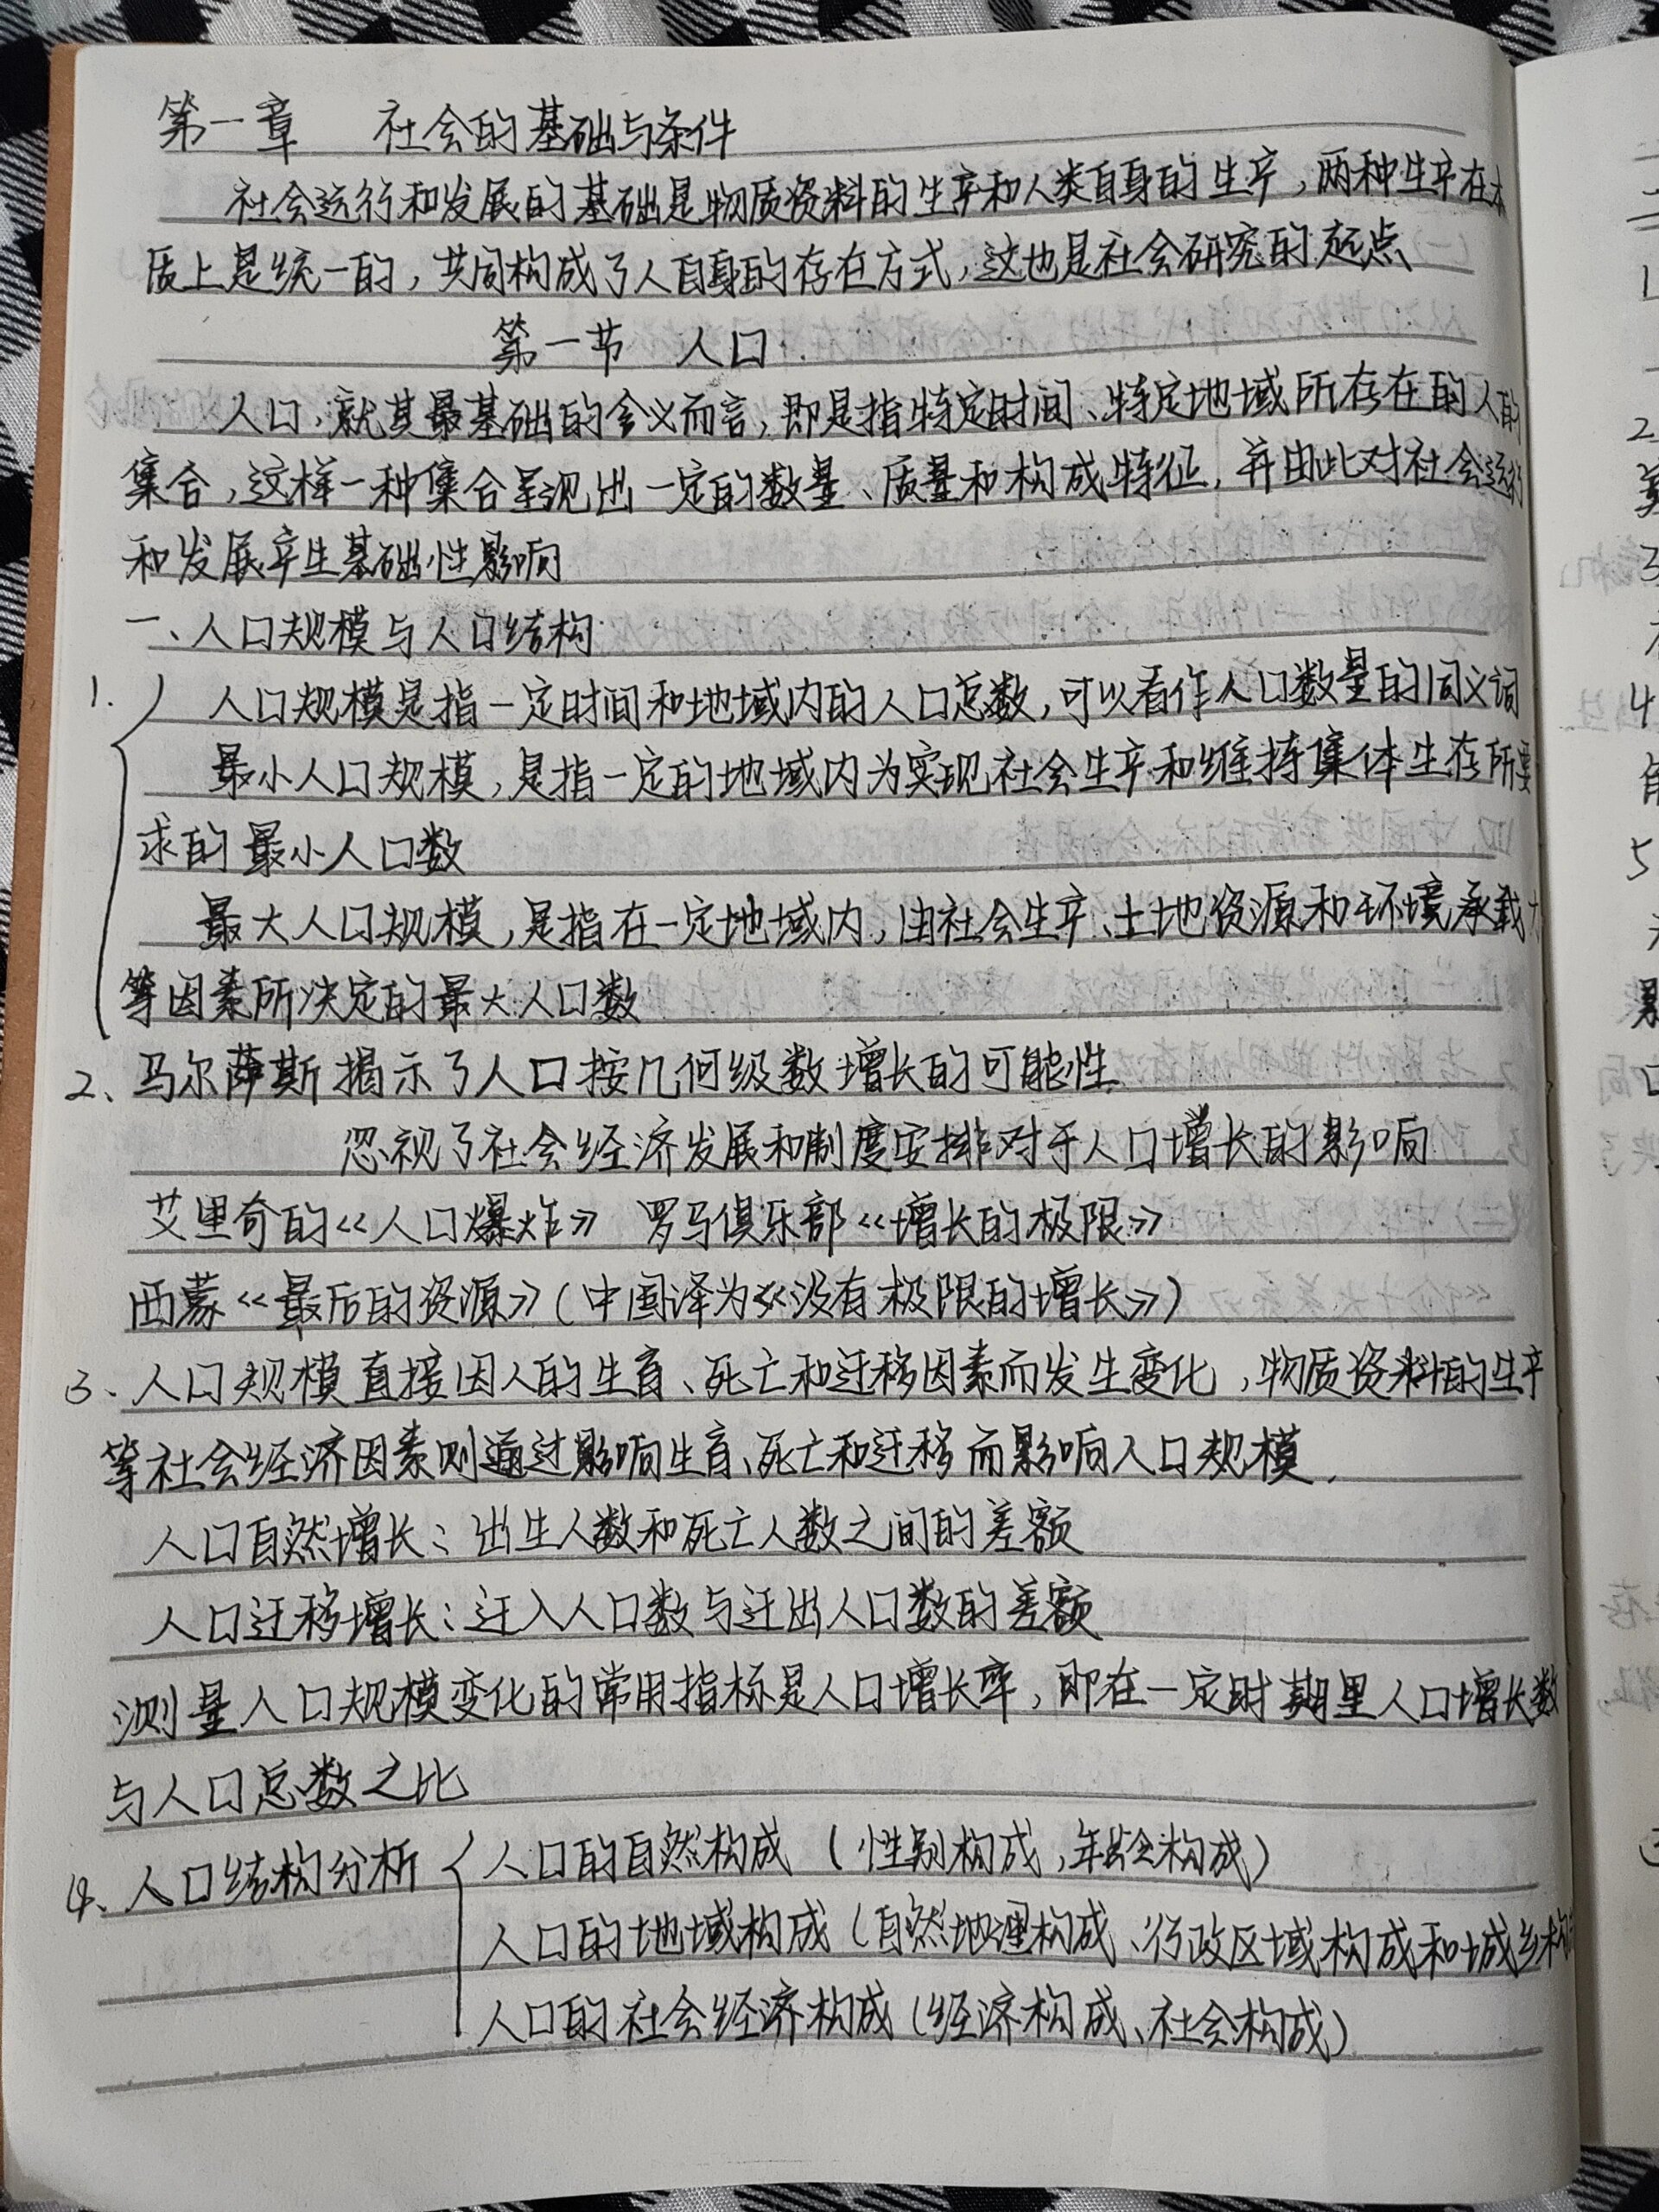 第一章 社会的基础与条件
社会运行和发展的基础是物质资料的生产和人类自身的生产，两种生产在本
质上是统一的，共同构成了人自身的存在方式，这也是社会研究的起点
第一节 人口
人口，就其最基础的含义而言，即是指特定时间、特定地域所存在的人的
集合，这样一种集合呈现出一定的数量、质量和构成特征，并由此对社会运行
和发展产生基础性影响
一、人口规模与人口结构
1. 人口规模是指一定时间和地域内的人口总数，可以看作人口数量的同义词
最小人口规模，是指一定的地域内为实现社会生产和维持集体生存所要
求的最小人口数
最大人口规模，是指在一定地域内，由社会生产、土地资源和环境承载力
等因素所决定的最大人口数
2、马尔萨斯揭示了人口按几何级数增长的可能性
忽视了社会经济发展和制度安排对于人口增长的影响
艾里奇的《人口爆炸》 罗马俱乐部《增长的极限》
西蒙《最后的资源》(中国译为《没有极限的增长》)
3、人口规模直接因人的生育、死亡和迁移因素而发生变化，物质资料的生产
等社会经济因素则通过影响生育、死亡和迁移而影响人口规模.
人口自然增长：出生人数和死亡人数之间的差额
人口迁移增长：迁入人口数与迁出人口数的差额
测量人口规模变化的常用指标是人口增长率，即在一定时期里人口增长数
与人口总数之比
4、人口结构分析 人口的自然构成（性别构成，年龄构成）
人口的地域构成（自然地理构成、行政区域构成和城乡构成
人口的社会经济构成（经济构成、社会构成）